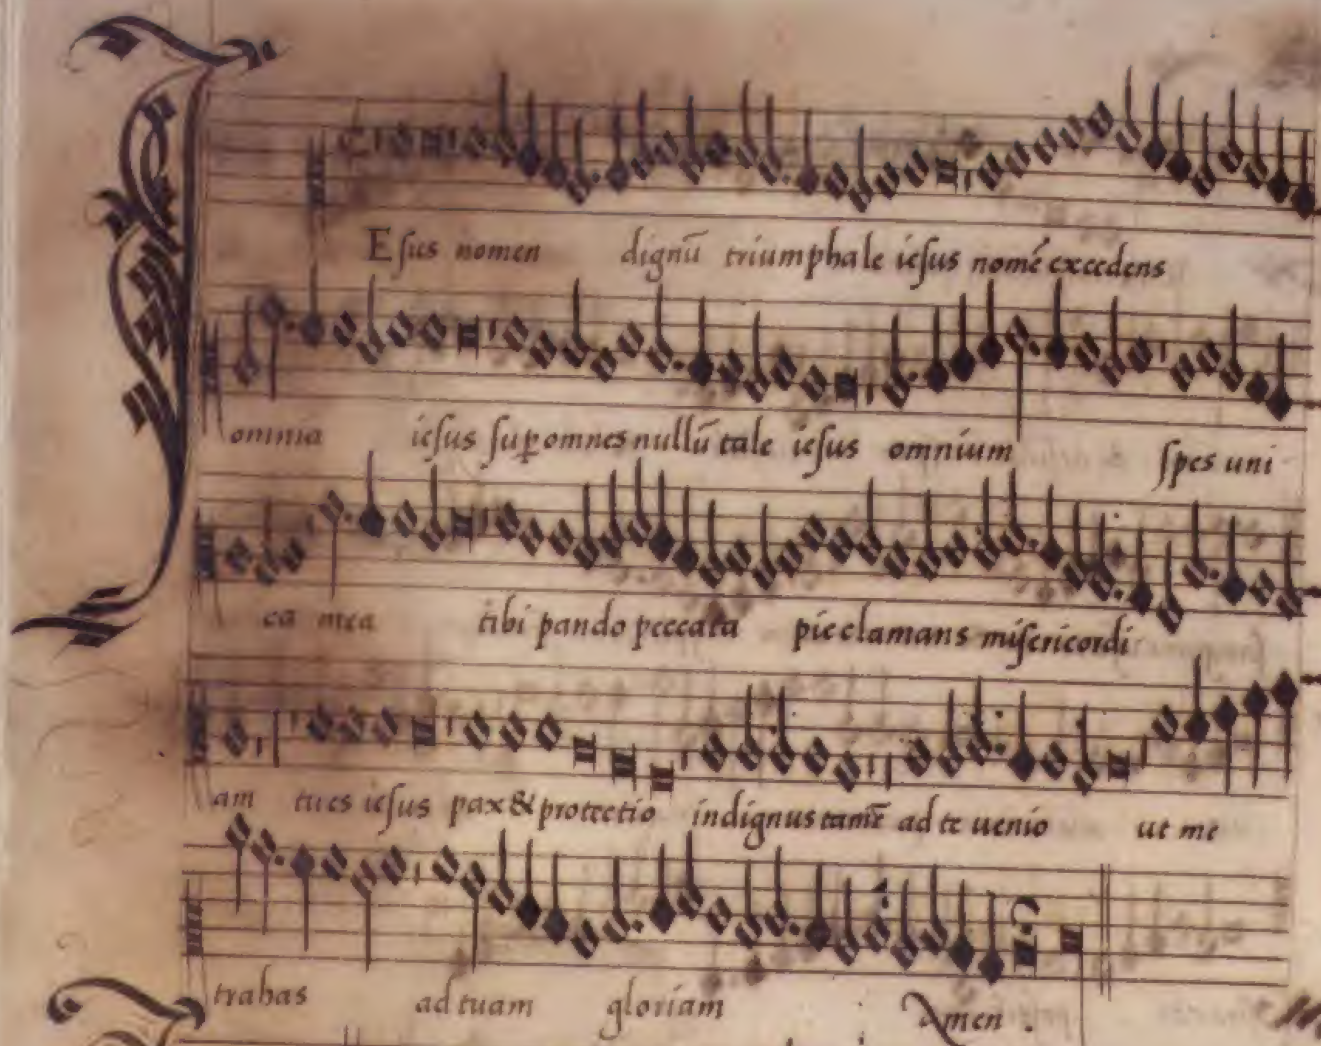 IEsus nomen dignū triumphale iesus nomē excedens
omnia iesus sup̱ omnes nullū tale iesus omnium spes uni
ca mea tibi pando peccata pie clamans misericordi
am tu es iesus pax & protectio indignus tamē ad te uenio ut me
trahas ad tuam gloriam Amen .